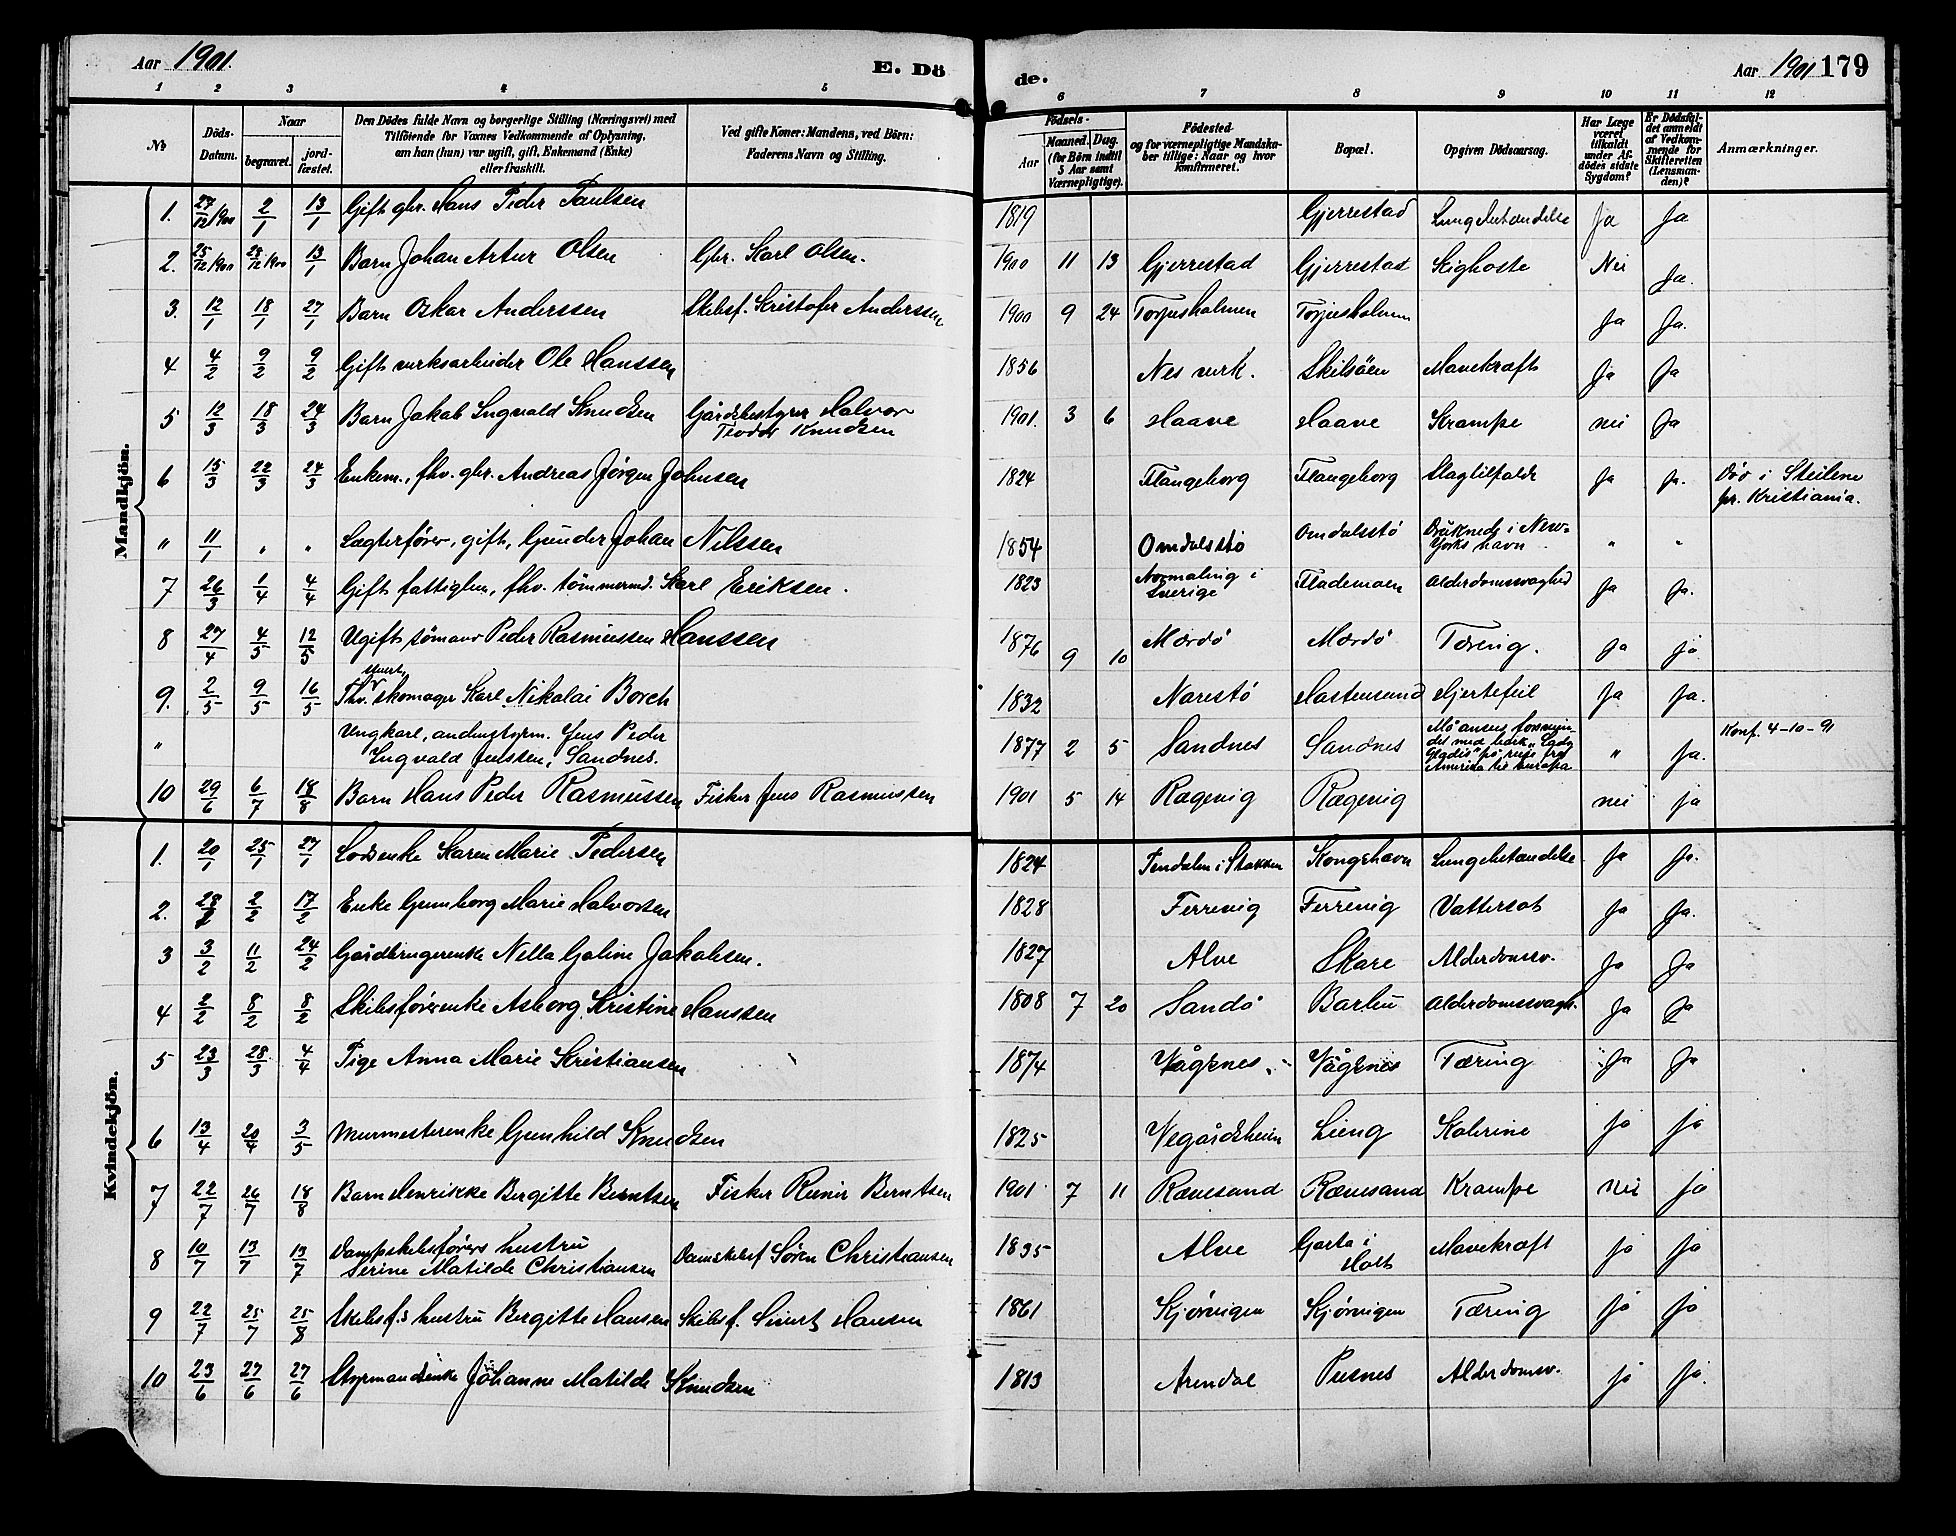 Aar 1901.
E. Dö
de.
Aar 1901 179
1 2 3 4 5 6 7 8 9 10 11 12
No
Döds-Datum.
Naar
begravet.
jord-fæstet.
Den Dödes fulde Navn og borgerlige Stilling (Næringsvei) med
Tilföiende for Voxnes Vedkommende af Oplysning,
om han (hun) var ugift, gift, Enkemand (Enke)
eller fraskilt.
Ved gifte Koner: Mandens, ved Börn:
Faderens Navn og Stilling.
Födsels-
Aar
Maaned. Dag.
(for Börn indtil
5 Aar samt
Værnepligtige).
Födested
og for værnepligtige Mandska-
ber tillige: Naar og hvor
konfirmeret.
Bopæl.
Opgiven Dödsaarsag.
Har Læge
været
tilkaldt
under Af-
dödes sidste
Sygdom?
Er Dödsfal-
det anmeldt
af Vedkom-
mende for
Skifteretten
(Lensman-
den)?
Anmærkninger.
Mandkjön.
1. 27/12 1900 2/1 13/1 Gift gbr. Hans Peder Paulsen 1819 Gjerrestad Lungebetændelse Ja Ja
2. 25/12 1900 28/12 1900 13/1 Barn Johan Artur Olsen Gbr. Karl Olsen. 1900 11 13 Gjerrestad Gjerrestad Kighoste Nei Ja.
3. 12/1 18/1 27/1 Barn Oskar Anderssen Skibsf. Kristofer Anderssen 1900 9 24 Torjusholmen Torjusholmen Ja Ja.
4 4/2 9/2 9/2 Gift verksarbeider Ole Hanssen 1856 Nes verk. Skilsöen Mavekræft Ja Ja
5 12/3 18/3 24/3 Barn Jakob Ingvald Knudsen Gårdsbestyrer Halvor
Teodor Knudsen 1901. 3 6 Haave Haave Krampe nei Ja
6 15/3 22/3 24/3 Enkem., fhv. gbr. Andreas Jörgen Johnsen 1824 Flangeborg Flangeborg Slagtilfælde Ja Ja. Död i Steilene
pr. Kristiania.
" 11/1 " " Lægterförer, gift, Gunder Johan Nilssen 1854 Omdalsstö Omdalsstö Druknede i New-
Yorks havn " "
7 26/3 1/4 4/4 Gift fattiglem, fhv. tömmermd. Karl Eriksen. 1823 Normaling i
Sverige Flademoen Alderdomssvaghed Ja Ja.
8 27/4 4/5 12/5 Ugift sömand Peder Rasmussen Hanssen 1876 9 10 Mærdö Mærdö Tæring. Ja ja
9. 2/5 9/5 16/5 Fhv. skomager Karl Nikolai Borch 1832 Narestö Hastensund Hjertefeil Ja Ja.
" Ungkarl, andenstyrm. Jens Peder
Ingvald Jenssen, Sandnes. 1877 2 5 Sandnes Sandnes Må ansees forsvun-
det med bark "Lady
Gladis" på reise fra
Amerika til Europa " Ja. Konf. 4-10-91
10 29/6 6/7 18/8 Barn Hans Peder Rasmussen Fisker Jens Rasmussen 1901 5 14 Rægevig Rægevig nei ja
Kvindekjön.
1. 20/1 25/1 27/1 Lodsenke Karen Marie Pedersen 1824 Kongshavn Lungebetændelse Ja Ja.
2. 2/2 17/2 Enke Gunborg Marie Halvorsen 1828 Ferrevig Ferrevig Vattersot Ja Ja.
3 3/2 11/2 24/2 Gårdbrugerenke Nella Galine Jakobsen. 1827 Alve Skare Alderdomssv. Ja Ja
4 2/2 8/2 8/2 Skibsförerenke Asborg Kristine Hanssen 1808 7 20 Sandö Barbu Alderdomssvagh. Ja Ja
5 23/3 28/3 4/4 Pige Anna Marie Kristiansen 1874 Vågsnes Vågsnes Tæring Ja Ja
6 13/4 20/4 3/5 Murmesterenke Gunhild Knudsen 1825 Vegårdsheim Lieng Kolerine jo jo
7 22/7 26/7 18/8 Barn Henrikke Bergitte Berntsen Fisker Reinir Berntsen 1901. 7 11 Rævesand Rævesand Krampe nei ja
8 10/7 13/7 13/7 Dampskibsförers hustru
Serine Matilde Christiansen Damskibsf Sören Christiansen 1835 Alve Garta i
Holt Mavekræft ja ja
9 22/7 25/7 25/8 Skibsf.s hustru Bergitte Hansen Skibsf. Sivert Hansen 1861 Kjörvigen Kjörvigen Tæring ja ja
10 23/6 27/6 27/6 Styrmandsenke Johanne Matilde Knudsen 1813 Arendal Pusnes Alderdomsv. ja ja.